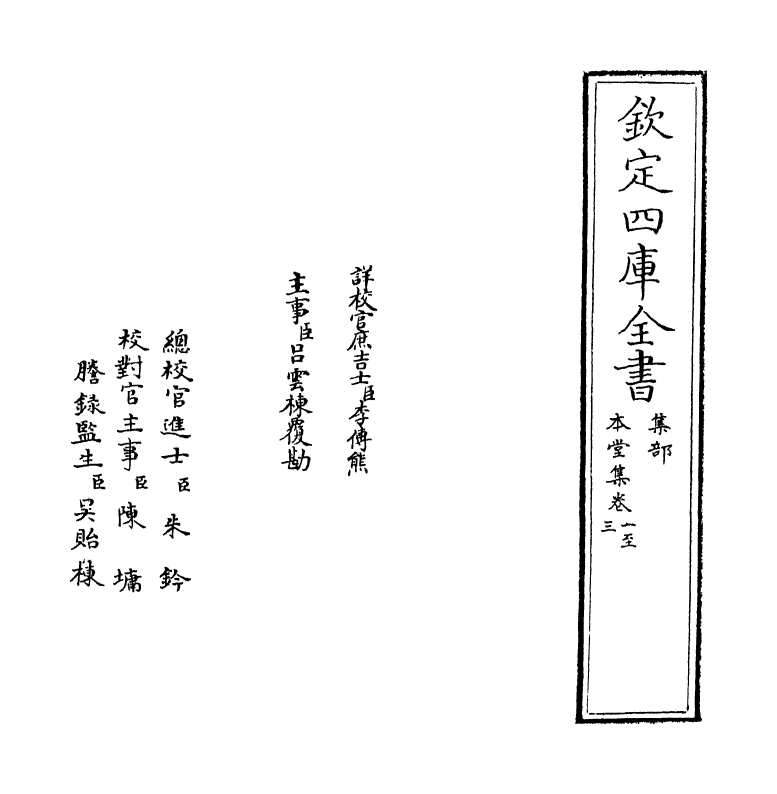 欽定四庫全書
集部
本堂集卷一至三
詳校官庶吉士臣李傅熊
主事臣呂雲棟覆勘
總校官進士臣朱鈐
校對官主事臣陳墉
謄錄監生臣吳貽棟